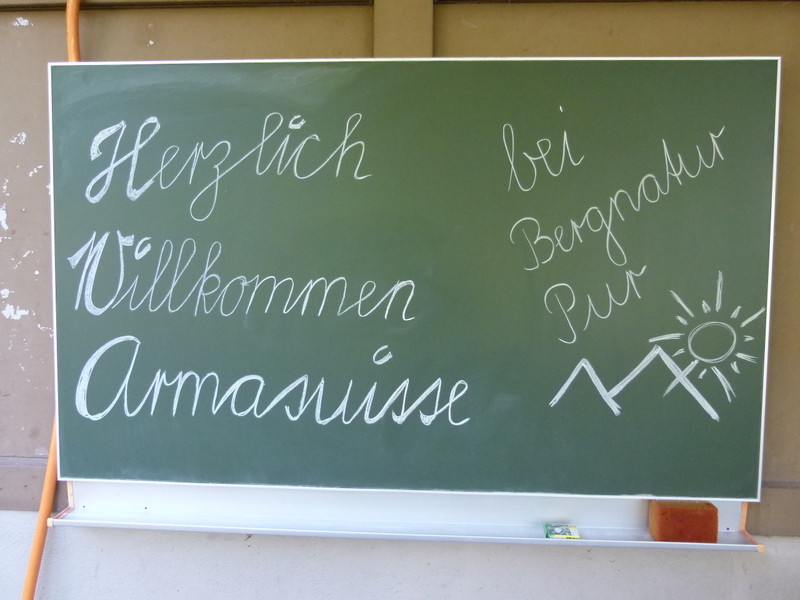 Herzlich
Willkommen
Armasuisse
bei
Bergnatur
Pur